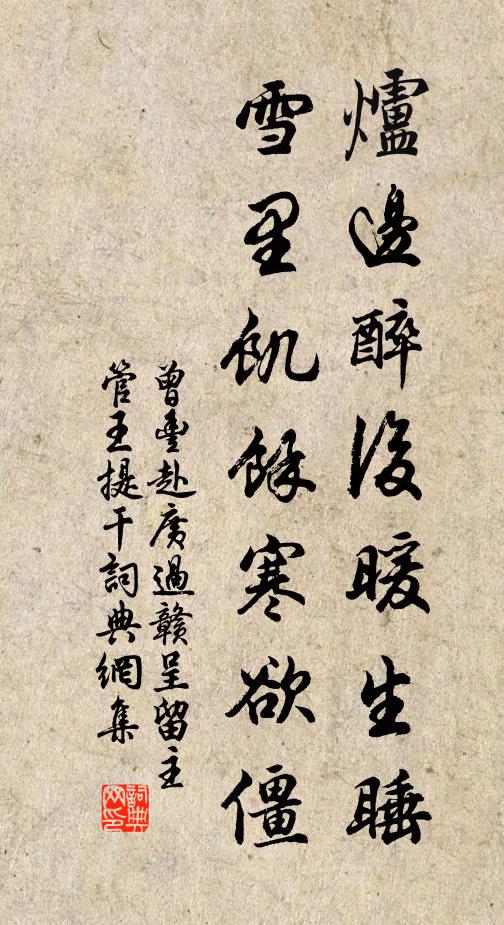 爐邊醉後暖生睡
雪里飢餘寒欲僵
曾豐赴廣過贛呈留主
管王提干詞典網集
詞典
网印